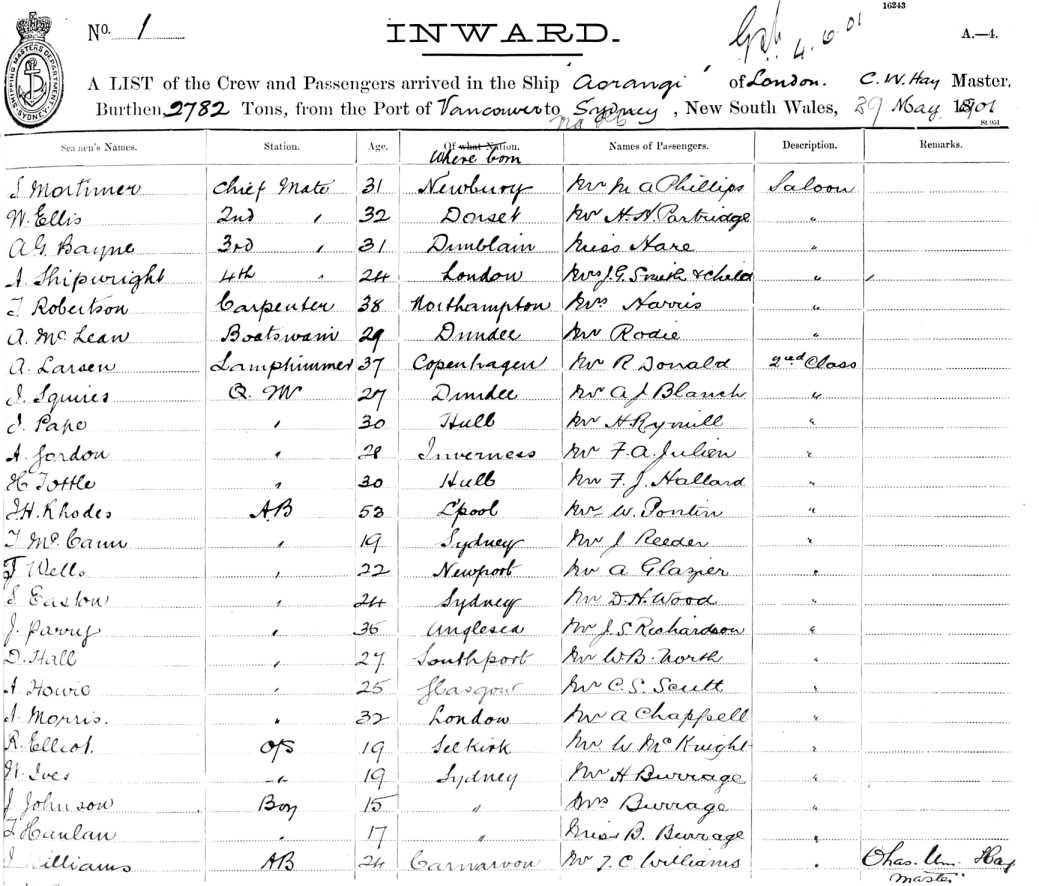 16243
No. 1 INWARD. 4.6.01 A.—4.
SHIPPING MASTERS DEPARTMENT SYDNEY
A LIST of the Crew and Passengers arrived in the Ship "Aorangi" of London. C. W. Hay Master.
Burthen, 2782 Tons, from the Port of Vancouver to Sydney, New South Wales, 29 May 1901
St 951
Seamen's Names. Station. Age. Of what Nation. Names of Passengers. Description. Remarks.
Where born
S Mortimer Chief Mate 31 Newbury Mr M A Phillips Saloon
W. Ellis 2nd " 32 Dorset Mr H. N. Partridge "
A G. Bayne 3rd " 31 Dunblain Miss Hare "
A. Shipwright 4th " 24 London Mrs J. G. Smith & child "
T Robertson Carpenter 38 Northampton Mrs Harris "
A. McLean Boatswain 29 Dundee Mr Rodie "
A. Larsen Lamptrimmer 37 Copenhagen Mr R Donald 2nd Class
J. Squires Q. M 27 Dundee Mr A J Blanch "
J. Pape " 30 Hull Mr H Rymill "
A. Gordon " 28 Inverness Mr F. A. Julien "
H. Tottle " 30 Hull Mr F. J. Hallard "
J. H. Rhodes AB 53 L'pool Mr W. Pontin "
T McCann " 19 Sydney Mr J Reeder "
T Wells " 22 Newport Mr A Glazier "
S Easton " 24 Sydney Mr D. H. Wood "
J. Parry " 35 Anglesea Mr J. S. Richardson "
D. Hall " 27 Southport Mr W B. North "
A Howie " 25 Glasgow Mr C. S. Scutt "
A. Morris. " 32 London Mr A Chappell "
R. Elliot. OS 19 Selkirk Mr W McKnight "
W. Ives " 19 Sydney Mr H Burrage "
J Johnson Boy 15 " Mrs Burrage "
T Hanlan " 17 " Miss B. Burrage "
J Williams AB 24 Carnarvon Mr T. C. Williams " Chas. Wm. Hay
Master